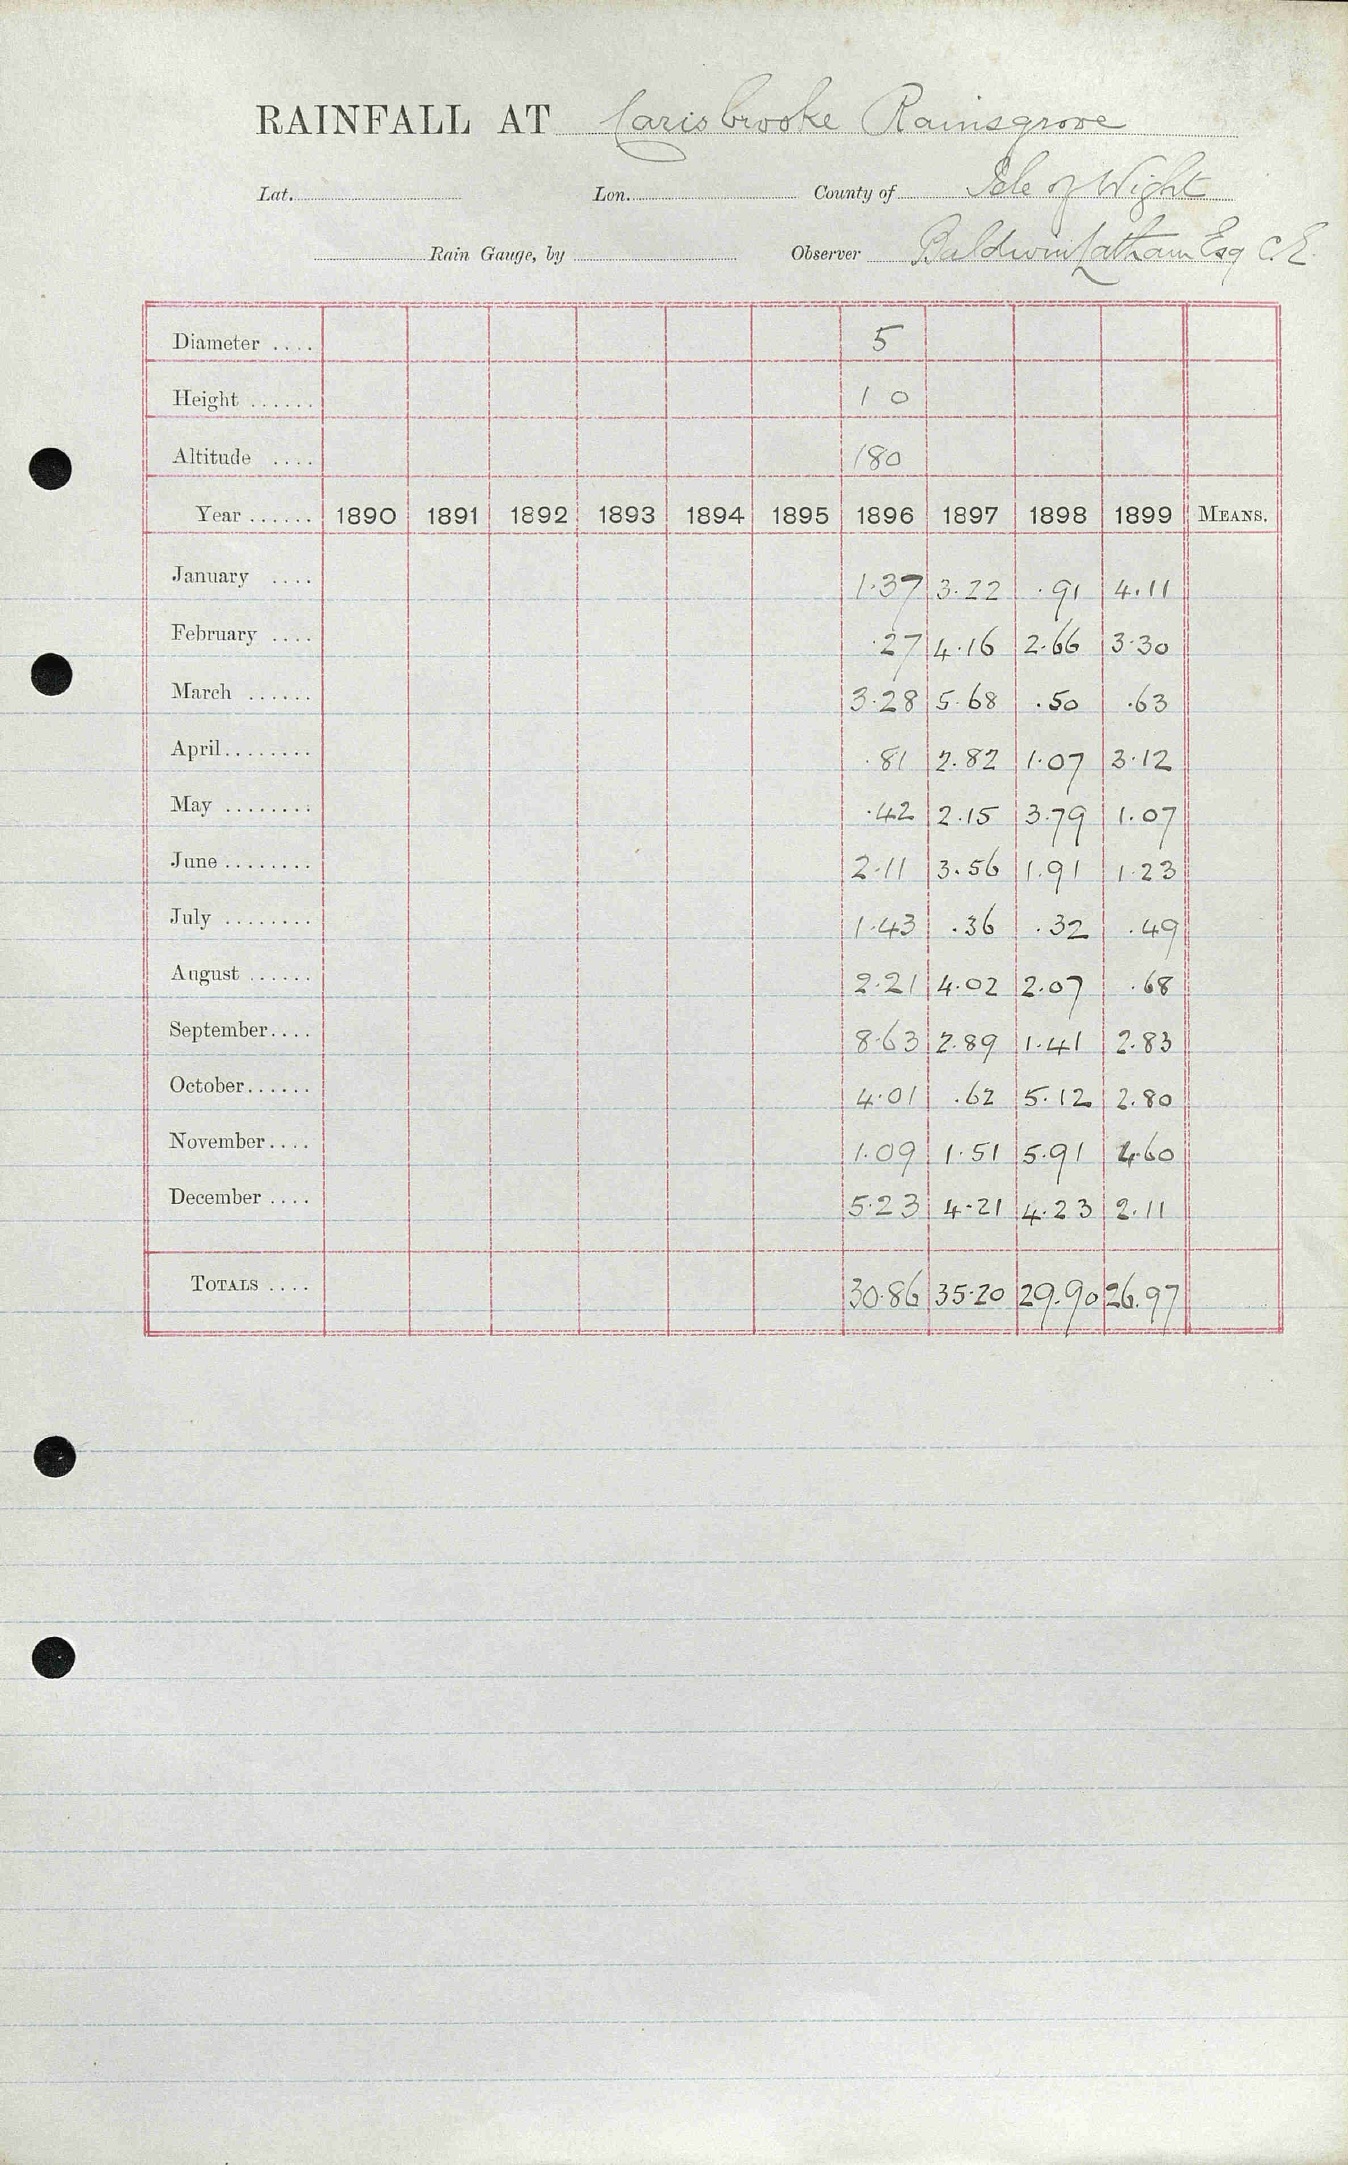 RAINFALL AT Carisbrooke Rainsgrove
Lat. Lon. County of Isle of Wight
Rain Gauge, by Observer Baldwin Latham Esq C.E.
Diameter .... 5
Height ...... 1 0
Altitude .... 180
Year ...... 1890 1891 1892 1893 1894 1895 1896 1897 1898 1899 MEANS.
January .... 1.37 3.22 .91 4.11
February .... .27 4.16 2.66 3.30
March ...... 3.28 5.68 .50 .63
April ........ .81 2.82 1.07 3.12
May ........ .42 2.15 3.79 1.07
June ........ 2.11 3.56 1.91 1.23
July ........ 1.43 .36 .32 .49
August ...... 2.21 4.02 2.07 .68
September .... 8.63 2.89 1.41 2.83
October ...... 4.01 .62 5.12 2.80
November .... 1.09 1.51 5.91 4.60
December .... 5.23 4.21 4.23 2.11
TOTALS .... 30.86 35.20 29.90 26.97